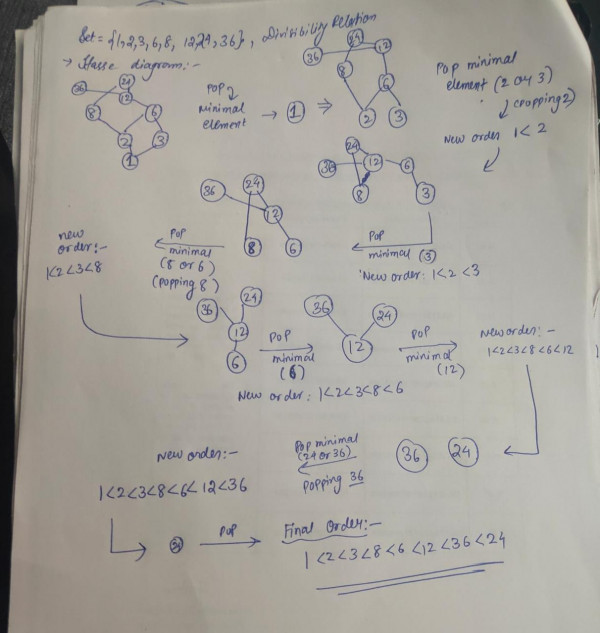 Set = {1,2,3,6,8, 12,24,36}, Divisibility Relation
→ Hasse diagram:-
36 24 12 8 6 2 3 1
POP
Minimal
element
→ 1 ⇒
36 24 12 8 6 2 3
Pop minimal
element (2 or 3)
(popping 2)
New order 1<2
24 36 12 6 8 3
POP
minimal (3)
New order: 1<2<3
36 24 12 8 6
POP
minimal
(8 or 6)
(popping 8)
new
order:-
1<2<3<8
36 24 12 6
POP
minimal
(6)
New order: 1<2<3<8<6
36 24 12
POP
minimal
(12)
New order:-
1<2<3<8<6<12
36 24
Pop minimal
(24 or 36)
Popping 36
New order:-
1<2<3<8<6<12<36
POP
Final Order:-
1<2<3<8<6<12<36<24